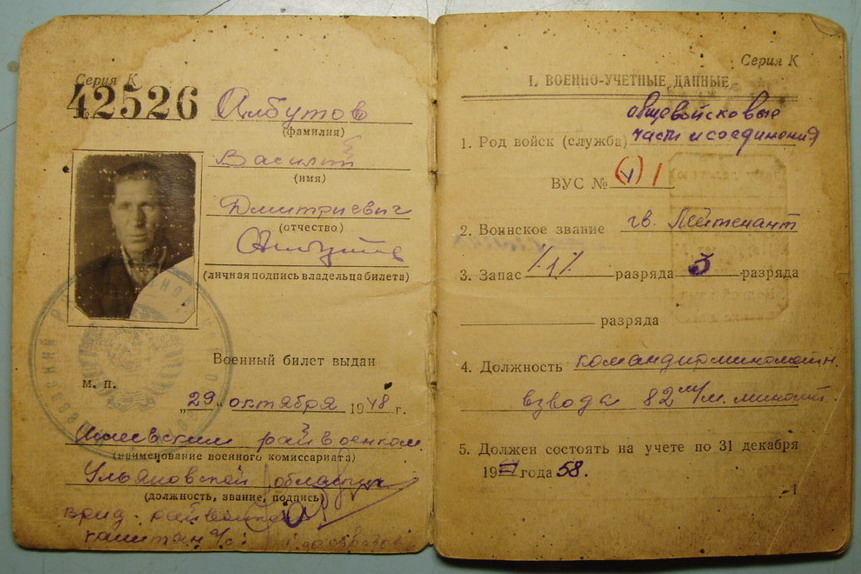 Серия К
42526
Албутов
(фамилия)
Василий
(имя)
Дмитриевич
(отчество)
(личная подпись владельца билета)
Военный билет выдан
м. п.
„29„ октября 1948 г.
райвоенком
(наименование военного комиссариата)
Ульяновской области
(должность, звание, подпись)
врид. райвоенкома
капитан а/с
Серия К
I. ВОЕННО-УЧЕТНЫЕ ДАННЫЕ
общевойсковые
1. Род войск (служба) части и соединения
ВУС № 1
2. Воинское звание гв. Лейтенант
3. Запас разряда 3 разряда
разряда
4. Должность командир минометн.
взвода 82 м/м. миномет.
5. Должен состоять на учете по 31 декабря
19 года 58.
1